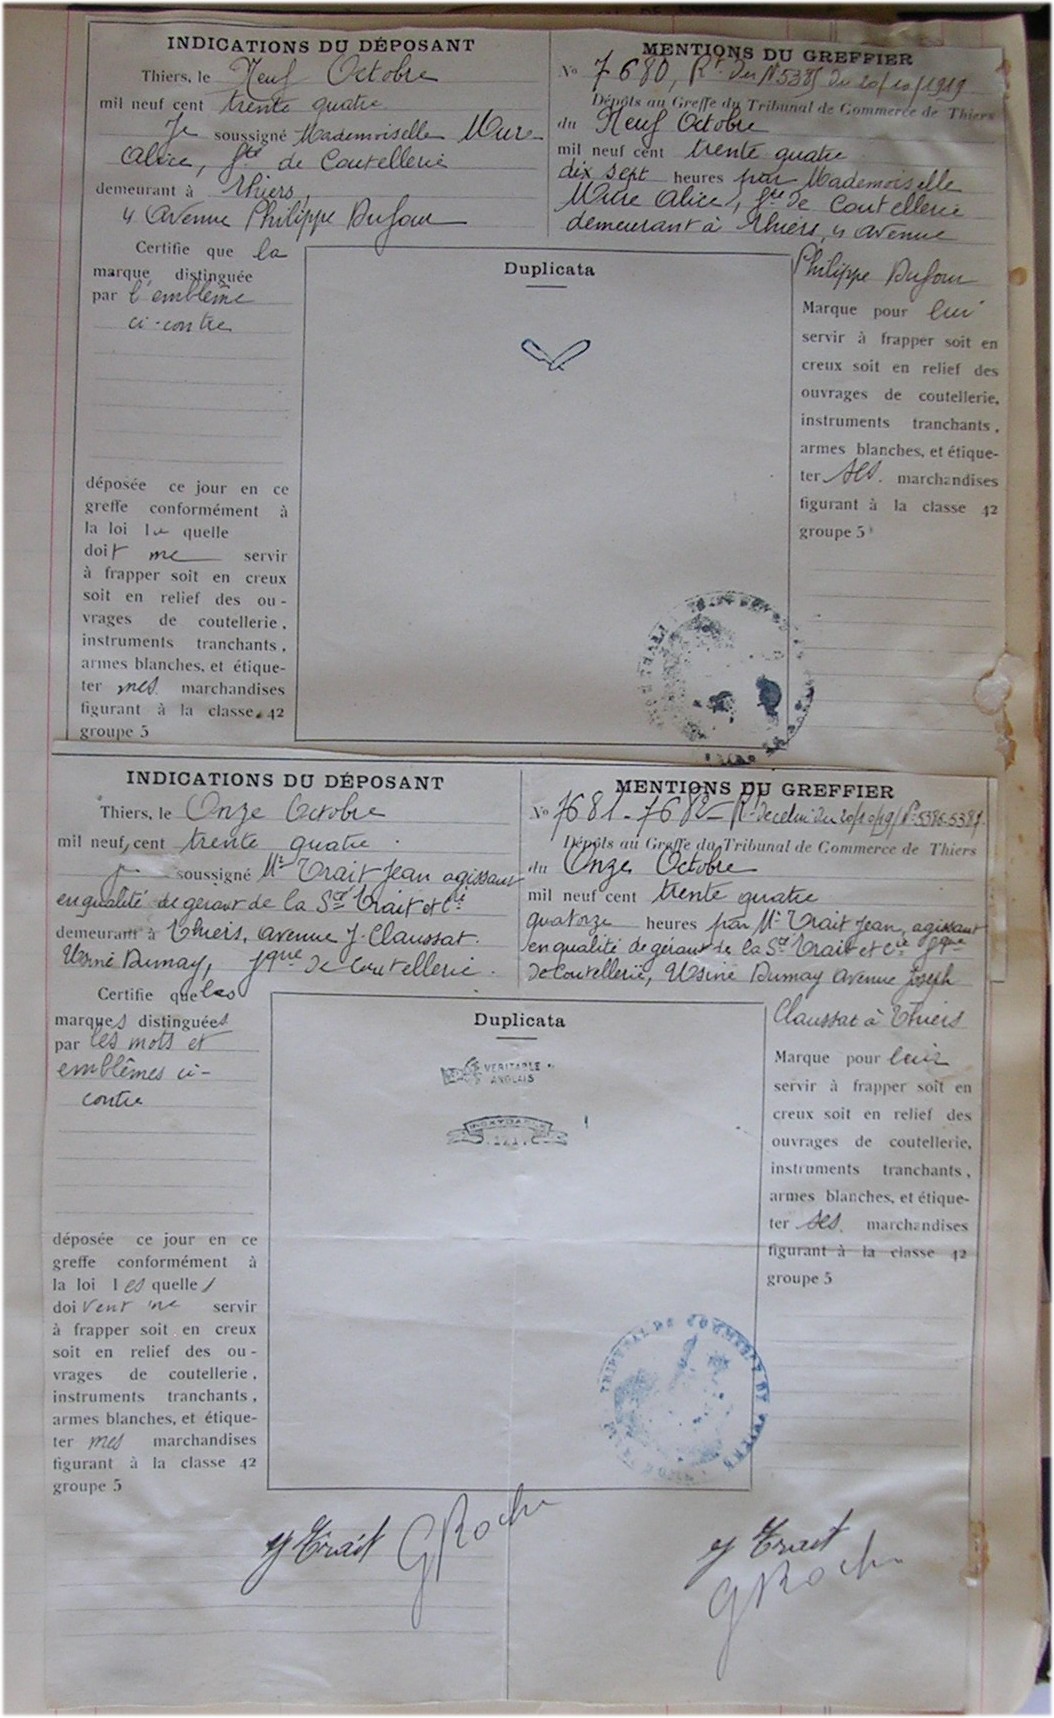 INDICATIONS DU DÉPOSANT
Thiers, le Neuf Octobre
mil neuf cent trente quatre
Je soussigné Mademoiselle Mure
Alice, fte de Coutellerie
demeurant à Thiers,
4 Avenue Philippe Dufour
Certifie que la
marque distinguée
par l'emblème
ci-contre
déposée ce jour en ce
greffe conformément à
la loi la quelle
doit me servir
à frapper soit en creux
soit en relief des ou-
vrages de coutellerie,
instruments tranchants,
armes blanches, et étique-
ter mes marchandises
figurant à la classe 42
groupe 5
Duplicata
MENTIONS DU GREFFIER
No 7680, Rt du No 5385 du 20/10/1919
Dépôts au Greffe du Tribunal de Commerce de Thiers
du Neuf Octobre
mil neuf cent trente quatre
dix sept heures par Mademoiselle
Mure Alice, fte de Coutellerie
demeurant à Thiers, 4 avenue
Philippe Dufour
Marque pour lui
servir à frapper soit en
creux soit en relief des
ouvrages de coutellerie,
instruments tranchants,
armes blanches, et étique-
ter ses marchandises
figurant à la classe 42
groupe 5
INDICATIONS DU DÉPOSANT
Thiers, le Onze Octobre
mil neuf cent trente quatre
Je soussigné Mr Trait Jean agissant
en qualité de gérant de la Sté Trait et Cie
demeurant à Thiers, avenue J. Claussat
Usine Dumay, fque de Coutellerie.
Certifie que les
marques distinguées
par les mots et
emblêmes ci-
contre
déposée ce jour en ce
greffe conformément à
la loi lesquelles
doivent me servir
à frapper soit en creux
soit en relief des ou-
vrages de coutellerie,
instruments tranchants,
armes blanches, et étique-
ter mes marchandises
figurant à la classe 42
groupe 5
Duplicata
VERITABLE
ANGLAIS
INOXYDABLE
MENTIONS DU GREFFIER
No 7681-7682- Rt de celui du 20/10/19/ No 5386-5387
Dépôts au Greffe du Tribunal de Commerce de Thiers
du Onze Octobre
mil neuf cent trente quatre
quatorze heures par Mr Trait Jean, agissant
en qualité de gérant de la Sté Trait et Cie fque
de Coutellerie, Usine Dumay avenue Joseph
Claussat à Thiers
Marque pour lui
servir à frapper soit en
creux soit en relief des
ouvrages de coutellerie,
instruments tranchants,
armes blanches, et étique-
ter ses marchandises
figurant à la classe 42
groupe 5
TRIBUNAL DE COMMERCE DE THIERS
J Trait GRoche
J Trait
GRoche